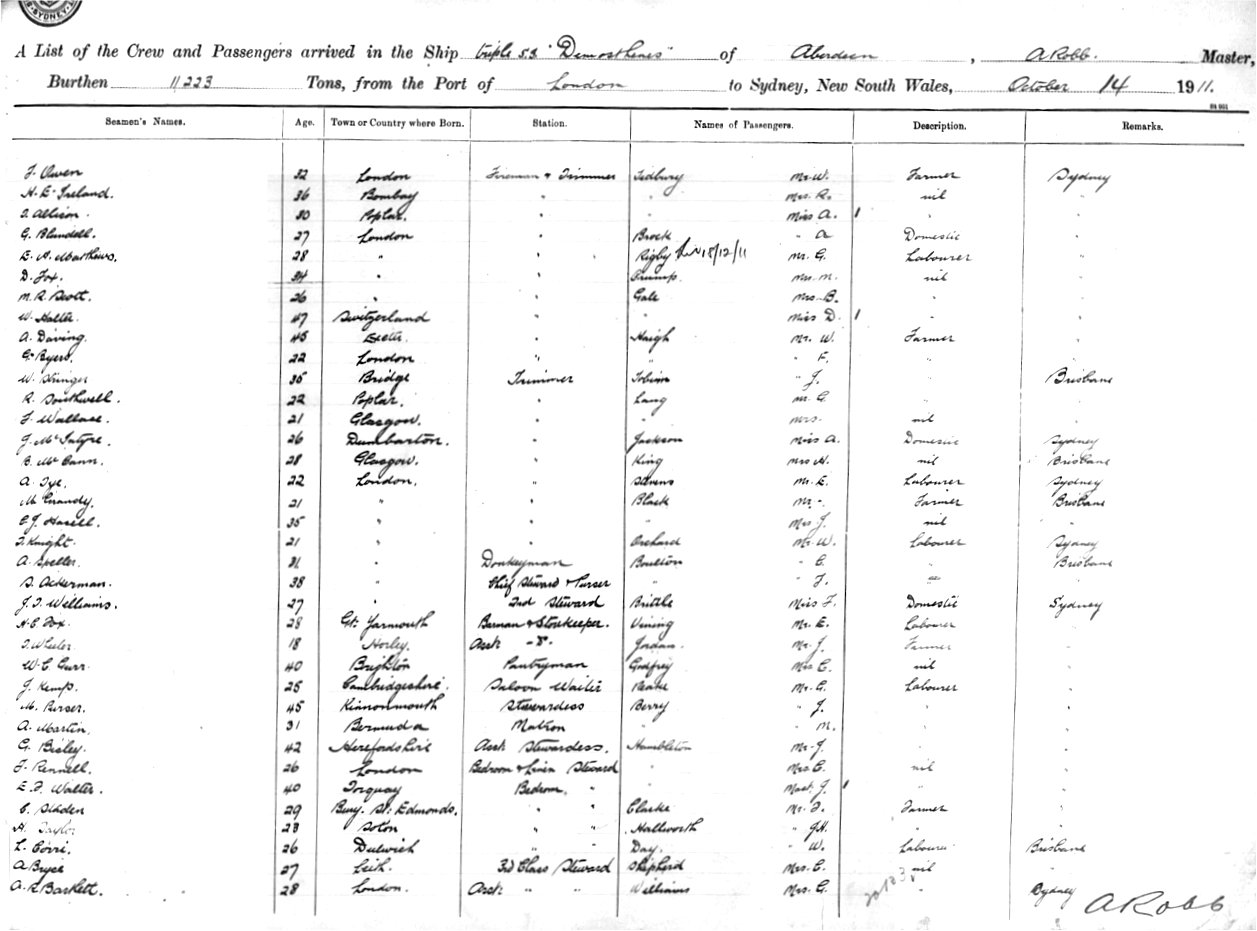 SYDNEY
A List of the Crew and Passengers arrived in the Ship triple s.s. "Demosthenes" of Aberdeen, A Robb. Master,
Burthen 11223 Tons, from the Port of London to Sydney, New South Wales, October 14 1911.
Seamen's Names. Age. Town or Country where Born. Station. Names of Passengers. Description. Remarks.
F. Owen 32 London Fireman & Trimmer Tedbury Mr. W. Farmer Sydney
H. E. Ireland. 36 Bombay " " Mrs. R. nil "
Allison. 30 Poplar. " " Miss A. 1 " "
G. Blundell. 27 London " Brock " A Domestic "
E. A. Matthews. 28 " " Rigby 18/12/11 Mr. G. Labourer "
D. Fox. 34 " " Crump. Mrs. M. nil "
M. R. Scott. 26 " " Gale Mrs. B. " "
W. Halter. 47 Switzerland " " Miss D. 1 " "
A. Daving. 45 Exeter. " Haigh Mr. W. Farmer "
G. Byers. 22 London " " " F. " "
W. Stringer 35 Bridge Trimmer Tobin " J. " Brisbane
R. Southwell. 22 Poplar. " Lang Mr. G. " "
F. Wallace. 21 Glasgow. " " Mrs. nil "
J. McIntyre. 26 Dumbarton. " Jackson Miss A. Domestic Sydney
B. McCann. 28 Glasgow. " King Mrs H. nil Brisbane
A. Tye. 22 London. " Stevens Mr. E. Labourer Sydney
M. Grandy. 21 " " Black Mr. -. Farmer Brisbane
C. J. Hasell. 35 " " " Mrs J. nil "
Knight. 21 " " Orchard Mr. W. Labourer Sydney
A. Speller. 31 " Donkeyman Boulton " C. " Brisbane
S. Ackerman. 38 " Chief Steward & Purser " " F. "
J. T. Williams. 27 " 2nd Steward Brittle Miss F. Domestic Sydney
H. C. Fox. 28 Gt. Yarmouth Barman & Storekeeper. Vining Mr. E. Labourer "
Wheeler. 18 Horley. Asst. Jordan. Mr. J. Farmer "
W. C. Curr. 40 Brighton Pantryman Godfrey Mrs C. nil "
J. Kemp. 25 Cambridgeshire. Saloon Waiter Mr. G. Labourer "
M. Purser. 45 Stewardess Berry " J. " "
A. Martin. 31 Bermuda Matron " " M. " "
G. Bisley. 42 Herefordshire Asst. Stewardess. Hambleton Mr. J. " "
F. Rennell. 26 London Bedroom & Linen Steward " Mrs C. nil "
E. F. Walter. 40 Torquay Bedroom. " " Mast. J. 1 " "
C. Sladen 29 Bury. St. Edmonds. " " Clarke Mr. F. Farmer "
H. Taylor 23 Soton " " Hallworth " J.H. " "
L. Corri. 26 Dulwich " " Day. " W. Labourer Brisbane
A Bryce 27 Leith. 3rd Class Steward Shepherd Mrs. C. nil "
A. R. Bartlett. 28 London. Asst. " " Williams Mrs. G. " Sydney
A Robb